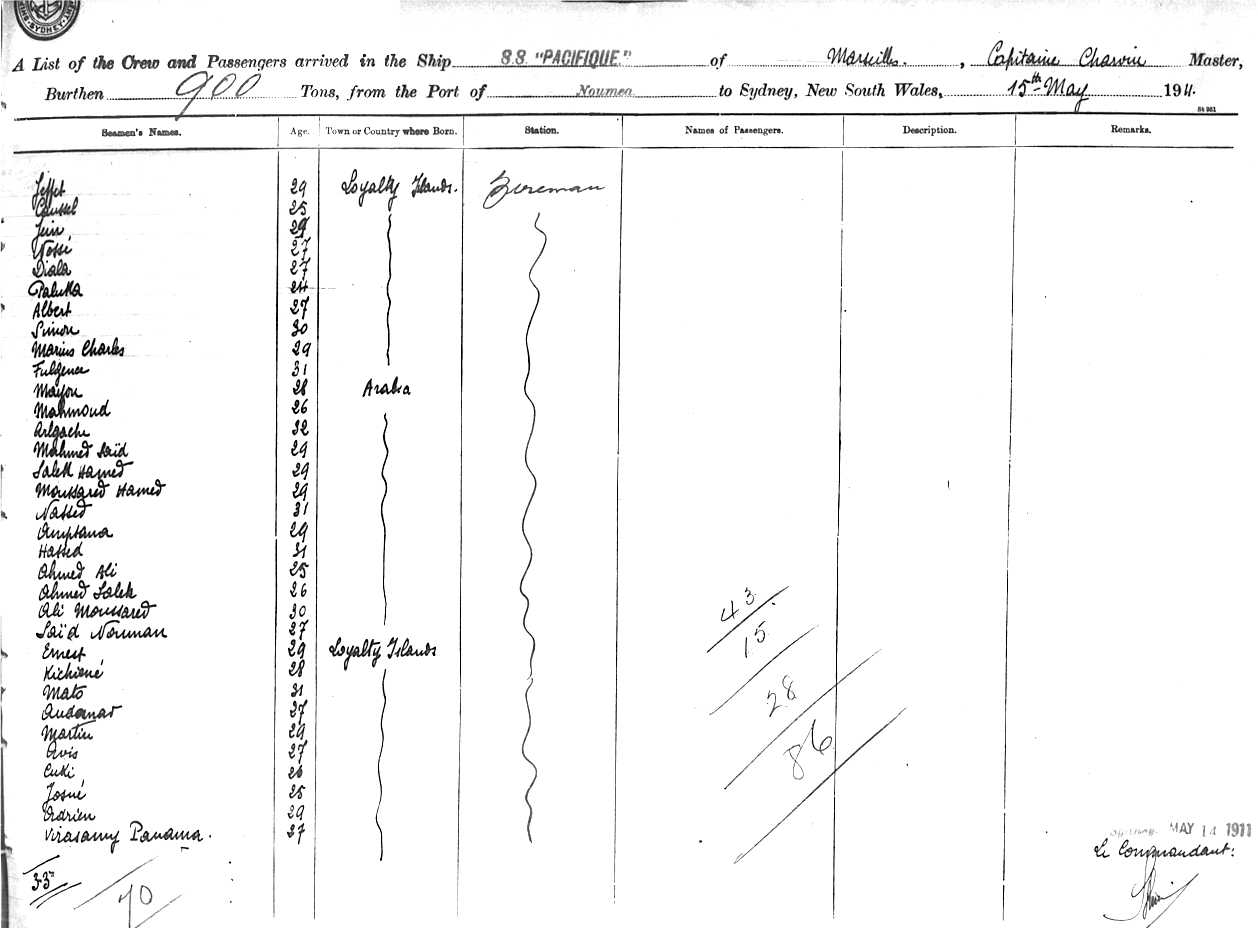 SYDNEY
A List of the Crew and Passengers arrived in the Ship S.S. "PACIFIQUE." of Marseilles. , Capitaine Charvin Master,
Burthen 900 Tons, from the Port of Noumea to Sydney, New South Wales, 15th May 1911.
St 961
Seamen's Names. Age. Town or Country where Born. Station. Names of Passengers. Description. Remarks.
29 Loyalty Islands. Fireman
25
29
27
Diala 27
24
Albert 27
Simon 30
Marius Charles 29
Fulgence 31
28 Arabia
Mahmoud 26
32
Mahmed Saïd 29
Saleh Hamed 29
Moussared Hamed 29
Nassed 31
29
Hassed 31
Ahmed Ali 25
Ahmed Saleh 26
Ali Moussared 30
Saïd Nouman 27
Ernest 29 Loyalty Islands
28
Mato 31
27
Martin 29
Avis 27
26
Josué 25
Adrien 29
Virasamy Panama. 27
33
70
43
15
28
86
MAY 14 1911
Le Commandant: